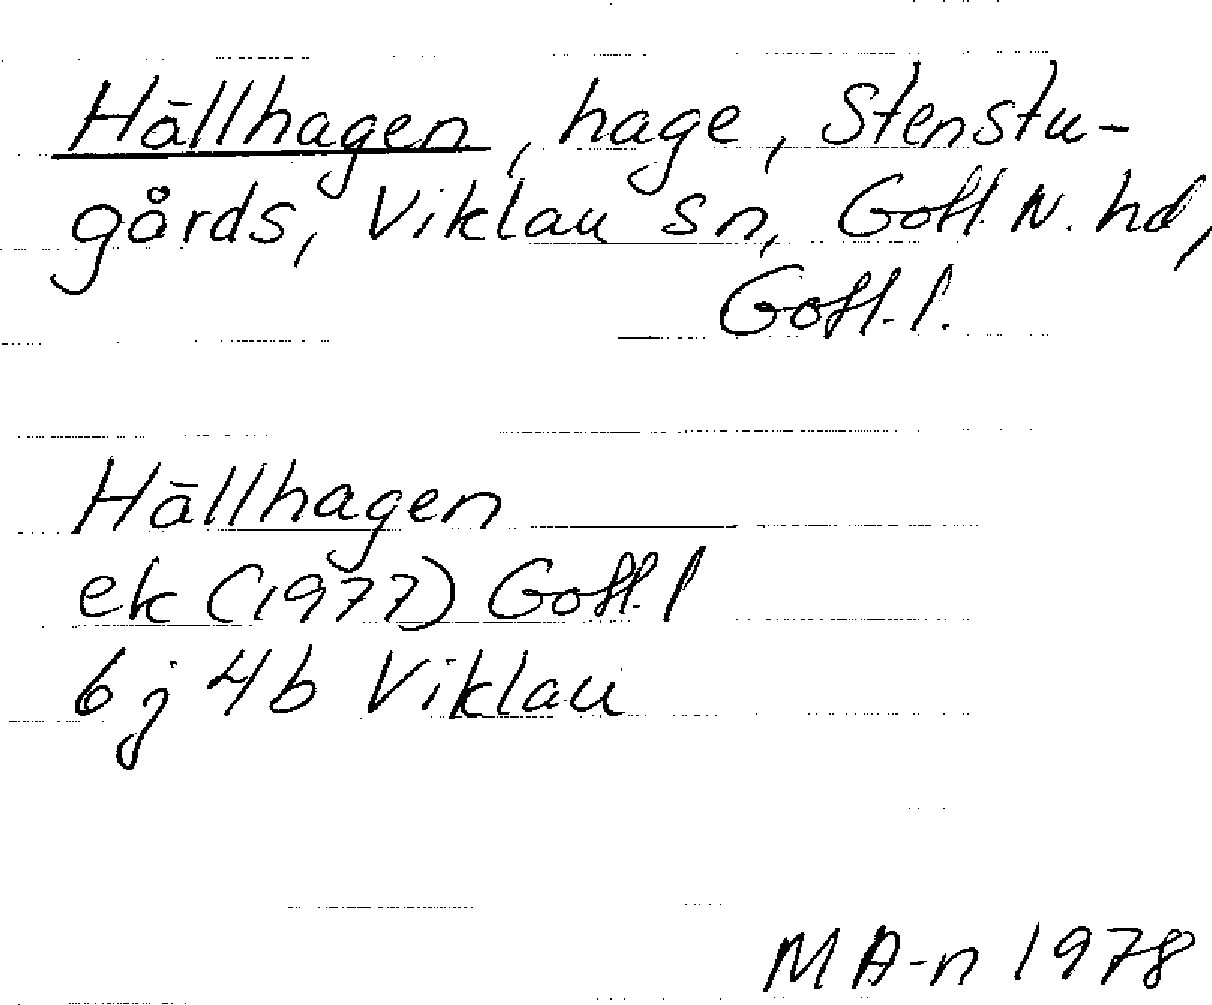 Hällhagen, hage, Stenstu-
gårds, Viklau sn, Gotl. N. hd,
Gotl. l.
Hällhagen
ek (1977) Gotl. l
6 j 4 b Viklau
M A-n 1978